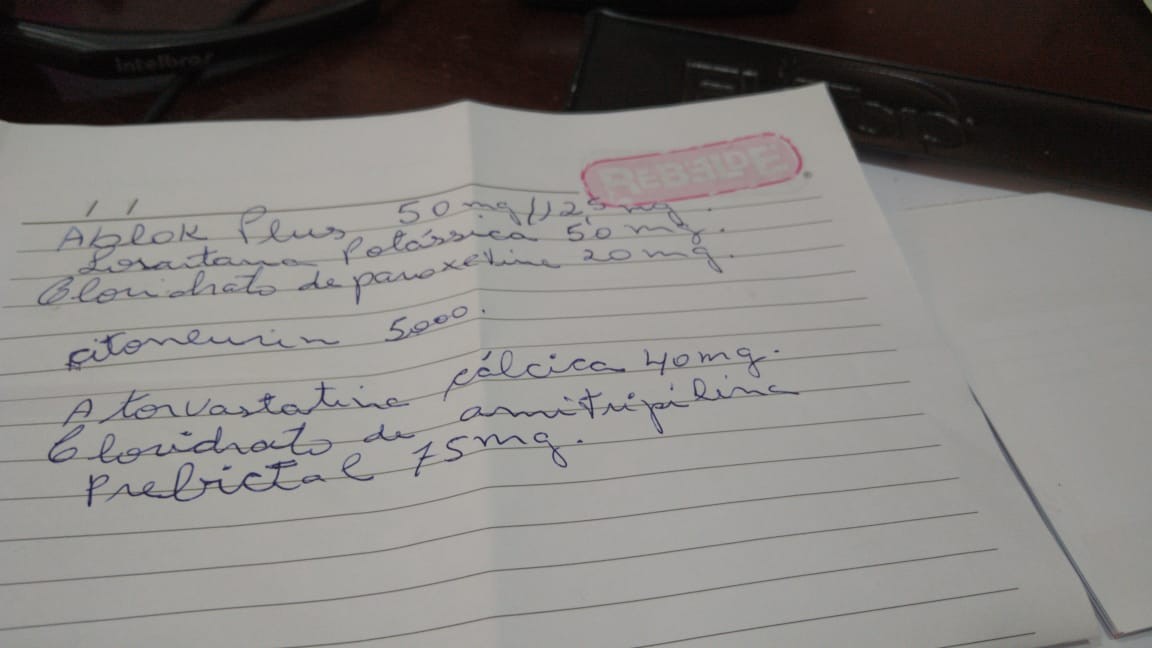 intelbras
ElTop
REBELDE
/ /
Ablok Plus 50 mg/12,5 mg.
Losartana Potássica 50 mg.
Cloridrato de paroxetina 20 mg.
citoneurin 5000.
Atorvastatina cálcica 40 mg.
Cloridrato de amitripilina
Prebictal 75 mg.